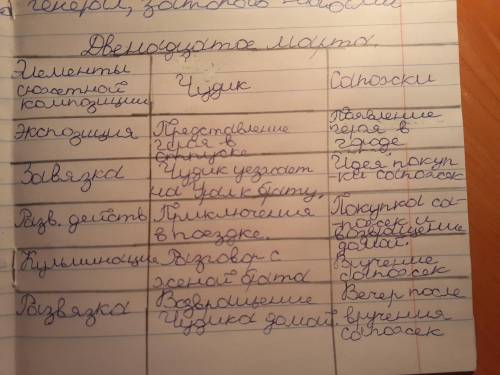 генерал,
Двенадцатое марта.
Элементы сюжетной композиции | Чудик | Сапожки
Экспозиция | Представление героя в отпуске | Появление героя в городе
Завязка | Чудик уезжает на Урал к брату. | Идея покуп-ки сапожек
Разв. действ | Приключения в поездке. | Покупка са-пожек и возвращение домой.
Кульминация | Разговор с женой брата | Вручение сапожек
Развязка | Возвращение Чудика домой. | Вечер после вручения сапожек